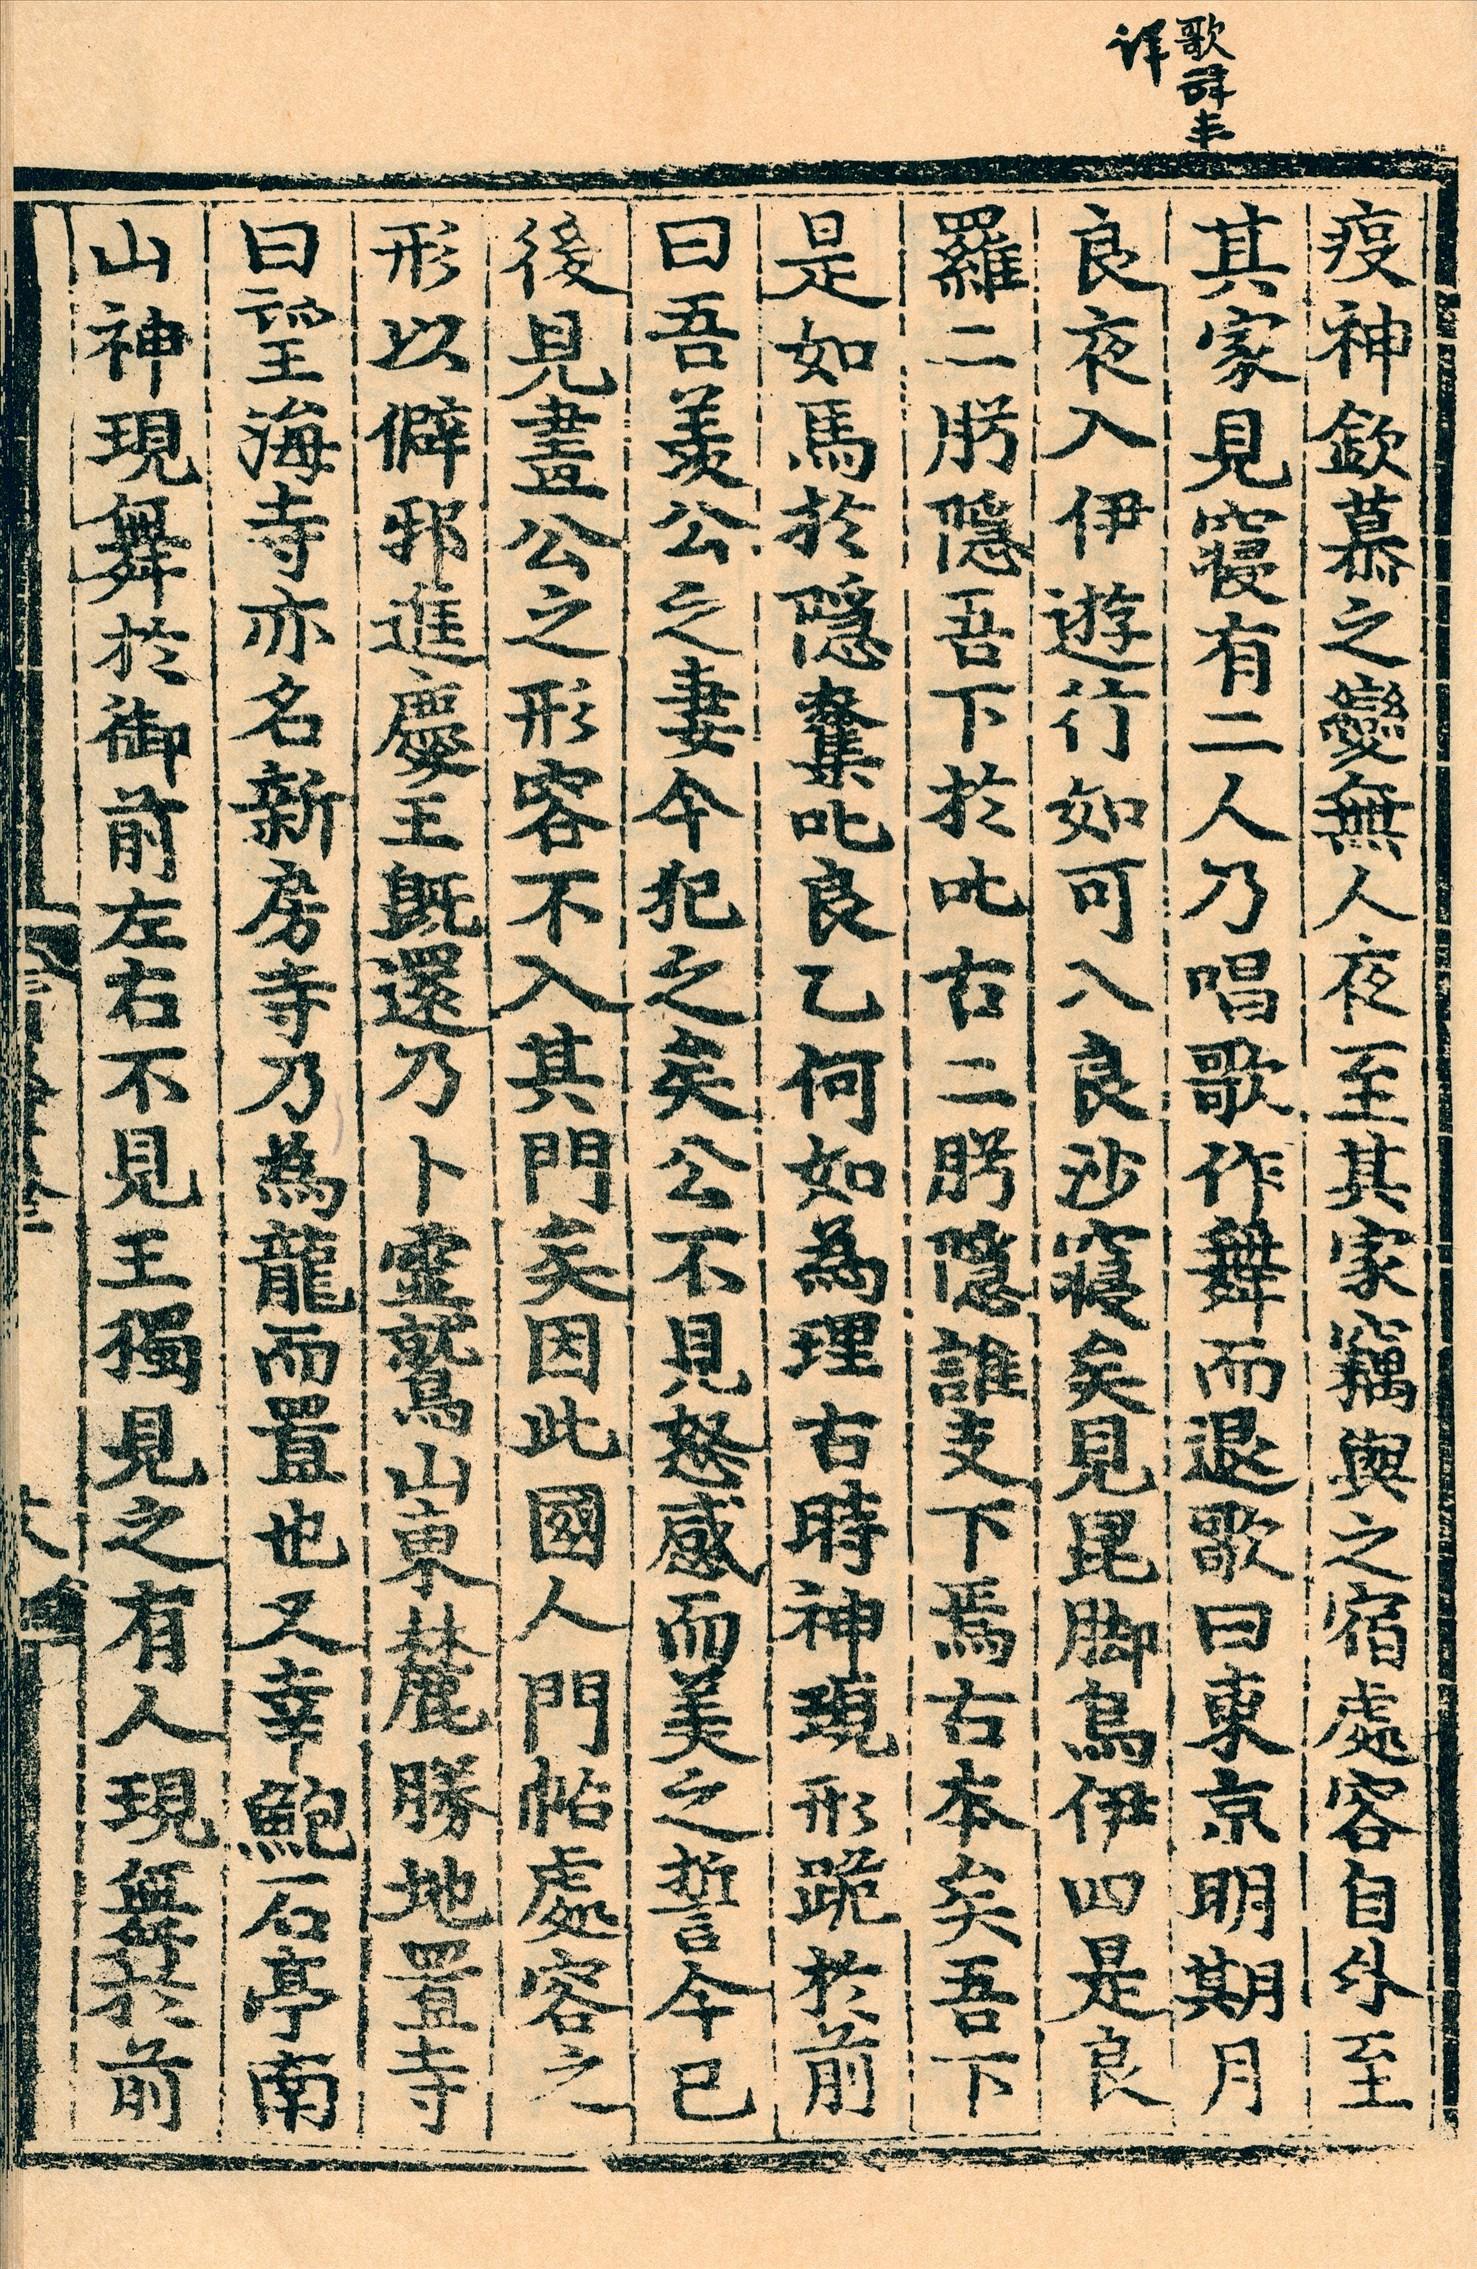 歌
详
疫神欽慕之變無人夜至其家竊與之宿處容自外至
其家見寢有二人乃唱歌作舞而退歌曰東京明期月
良夜入伊遊行如可八良沙寢矣見昆脚烏伊四是良
羅二肹隱吾下於叱古二肹隱誰支下焉古本矣吾下
是如馬於隱奪叱良乙何如為理古時神現形跪於前
曰吾羨公之妻今犯之矣公不見怒感而美之誓今已
後見畫公之形容不入其門矣因此國人門帖處容之
形以僻邪進慶王旣還乃卜靈鷲山東麓勝地置寺
曰望海寺亦名新房寺乃為龍而置也又幸鮑石亭南
山神現舞於御前左右不見王獨見之有人現舞於前